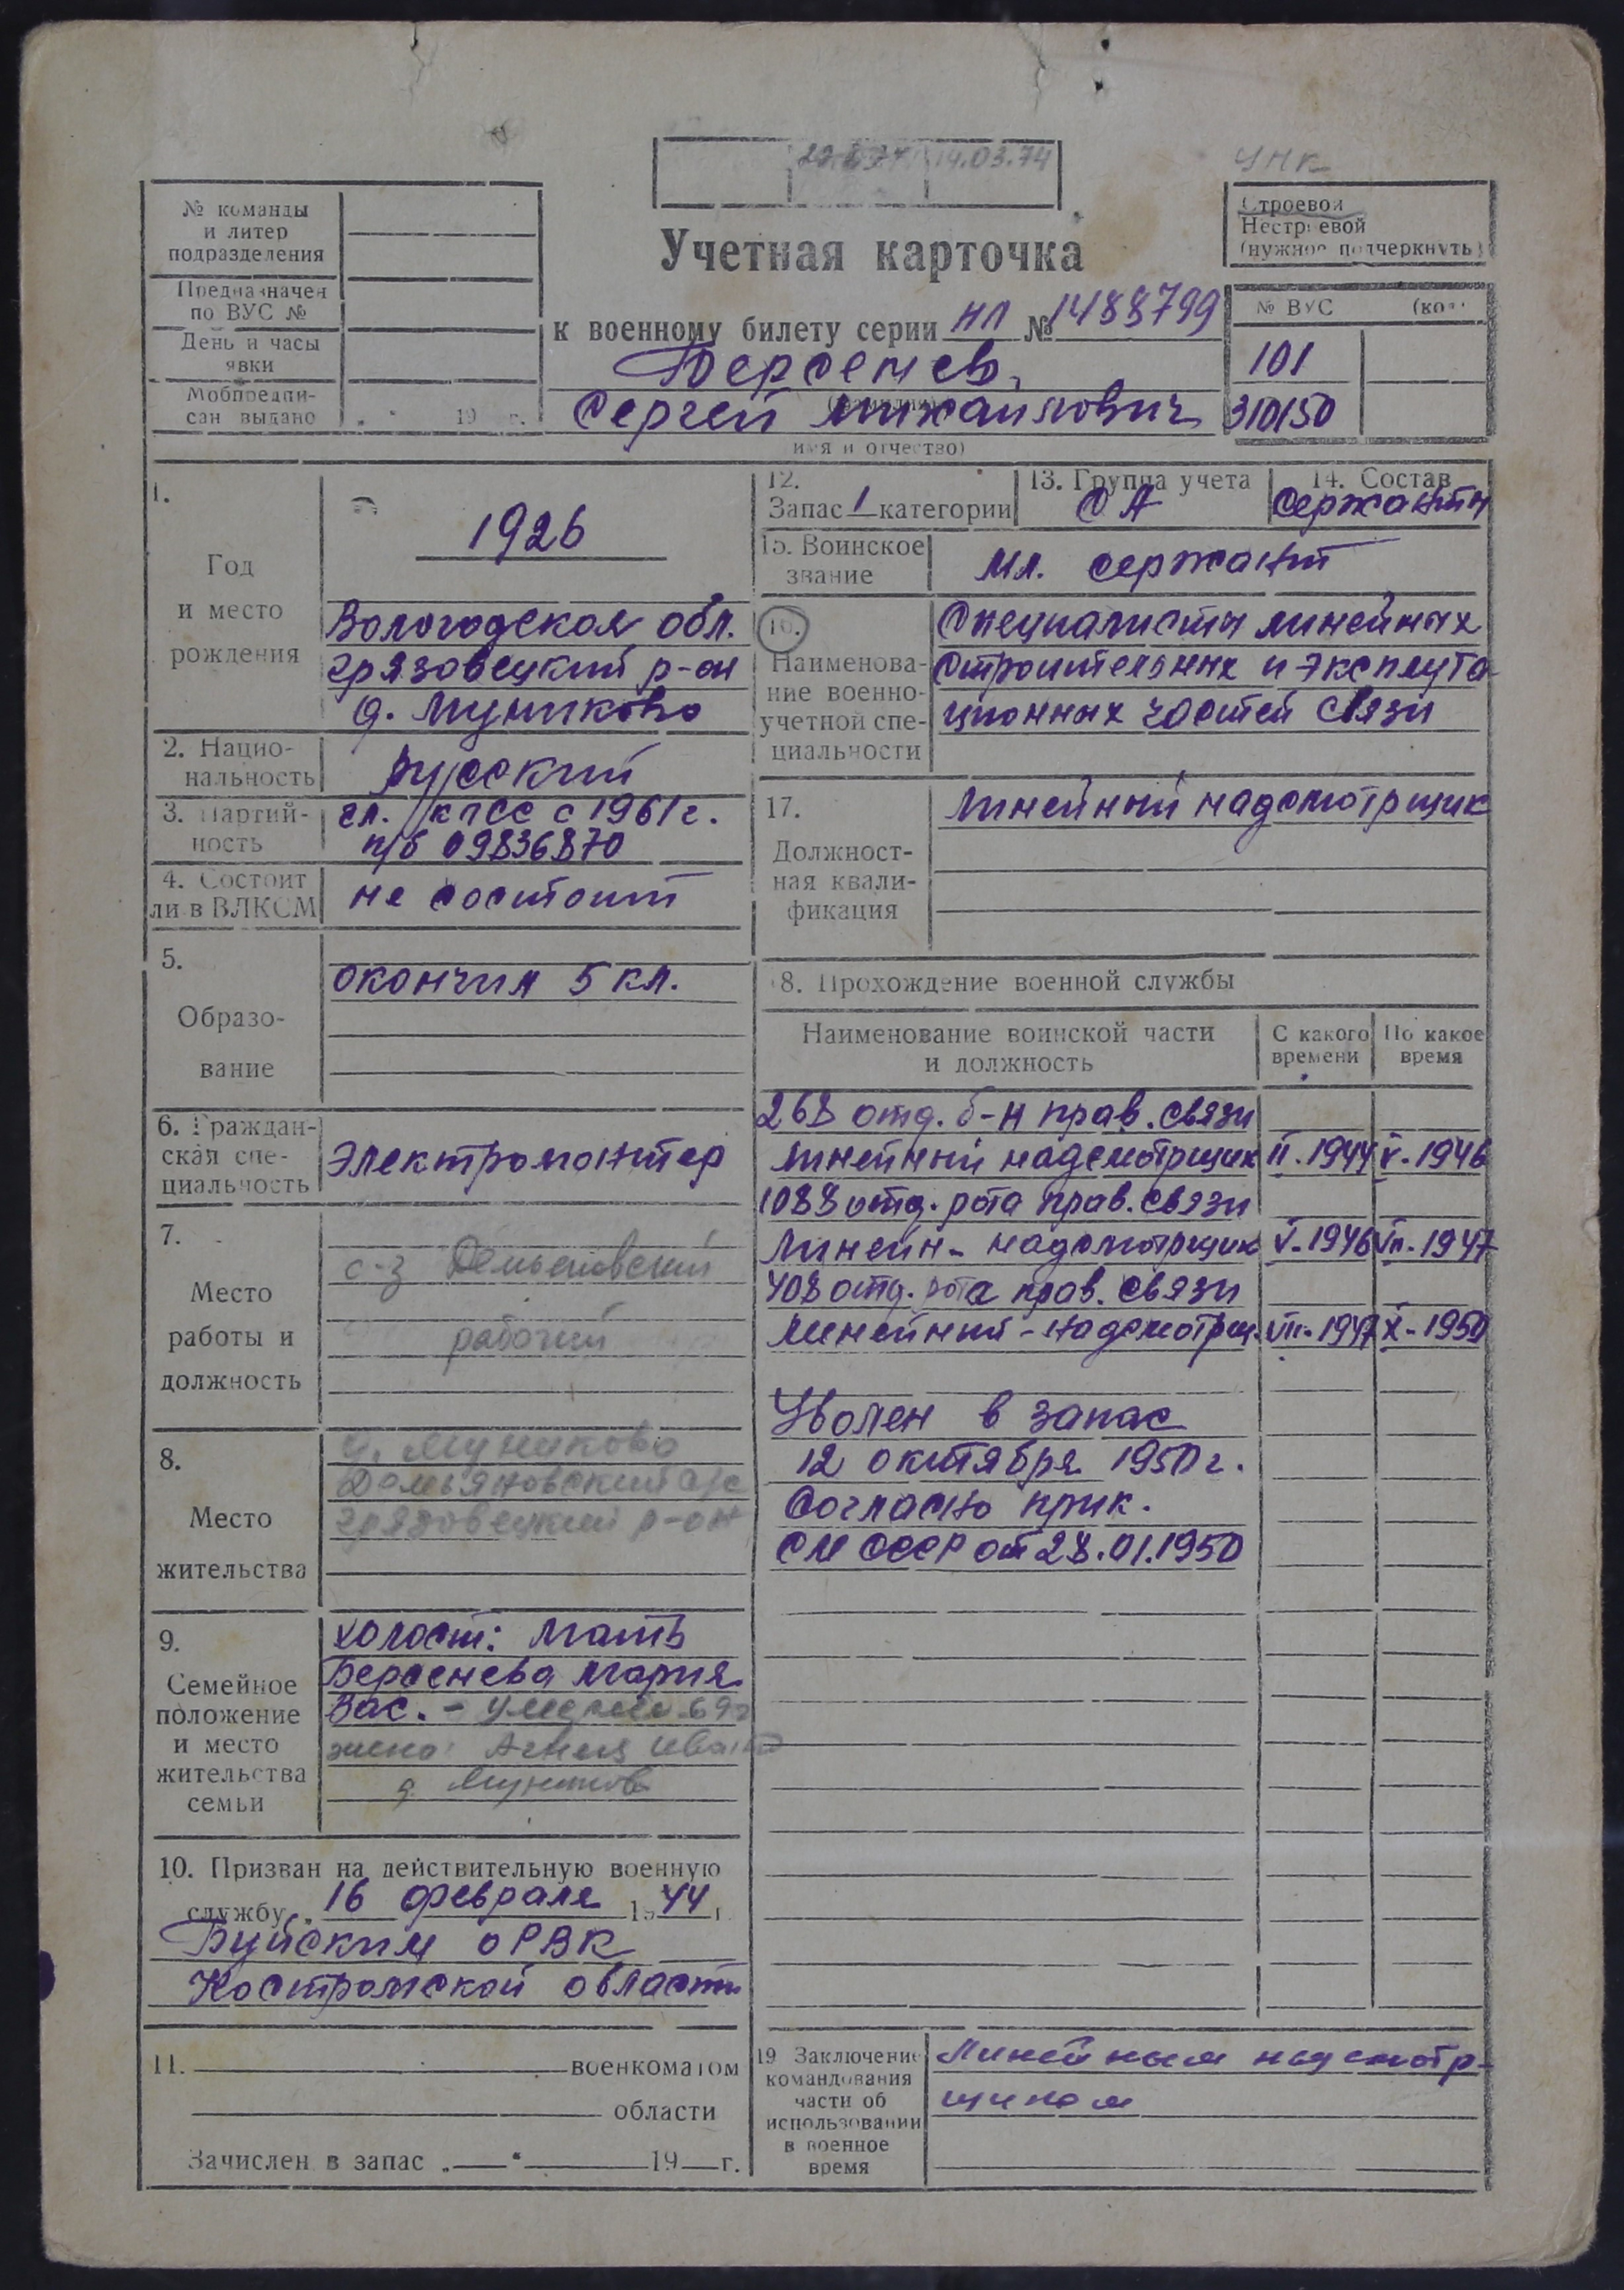 14.03.74
УНК
№ команды
и литер
подразделения
Предназначен
по ВУС №
День и часы
явки
Мобпредпи-
сан выдано
19 г.
Строевой
Нестроевой
(нужное подчеркнуть)
Учетная карточка
к военному билету серии НЛ № 1488799
Берсенев
(фамилия)
Сергей Михайлович
(имя и отчество)
№ ВУС (код)
101
310150
1.
Год
и место
рождения
1926
Вологодская обл.
грязовецкий р-он
д. Муниково
2. Нацио-
нальность
русский
3. Партий-
ность
чл. КПСС с 1961 г.
п/б 09836870
4. Состоит
ли в ВЛКСМ
не состоит
5.
Образо-
вание
окончил 5 кл.
6. Граждан-
ская спе-
циальность
Электромонтер
7.
Место
работы и
должность
с-з
рабочий
8.
Место
жительства
д. Муниково
Демьяновский с/с
грязовецкий р-он
9.
Семейное
положение
и место
жительства
семьи
холост: Мать
Берсенева Мария
Вас. – умерла 69г
жена: Агния
д. Муниково
10. Призван на действительную военную
службу 16 февраля 1944 г.
Буйским ОРВК
Костромской области
11. военкоматом
области
Зачислен в запас „ “ 19 г.
12.
Запас 1 категории
13. Группа учета
СА
14. Состав
Сержанты
15. Воинское
звание
мл. сержант
16.
Наименова-
ние военно-
учетной спе-
циальности
Специалисты линейных
строительных и эксплута-
ционных частей связи
17.
Должност-
ная квали-
фикация
Линейный надсмотрщик
18. Прохождение военной службы
Наименование воинской части
и должность
С какого
времени
По какое
время
268 отд. б-н прав. связи
линейный надсмотрщик II. 1944 V. 1946
1088 отд. рота прав. связи
Линейн- надсмотрщик V. 1946 VII. 1947
408 отд. рота прав. связи
Линейний - надсмотрщ. VII. 1947 X - 1950
Уволен в запас
12 октября 1950 г.
Согласно прик.
СМ СССР от 28.01.1950
19 Заключение
командования
части об
использовании
в военное
время
Линейным надсмотр-
щиком